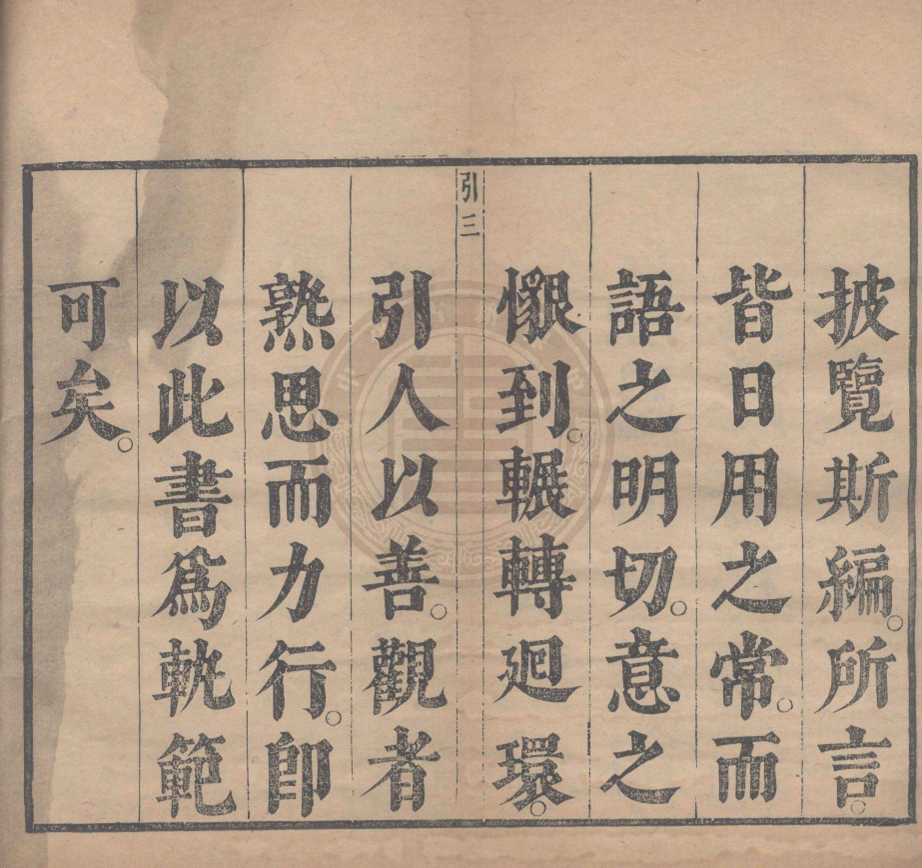 披覽斯編。所言。
皆日用之常。而
語之明切。意之
懇到。輾轉廻環。
引三
引人以善。觀者
熟思而力行。即
以此書爲軌範
可矣。